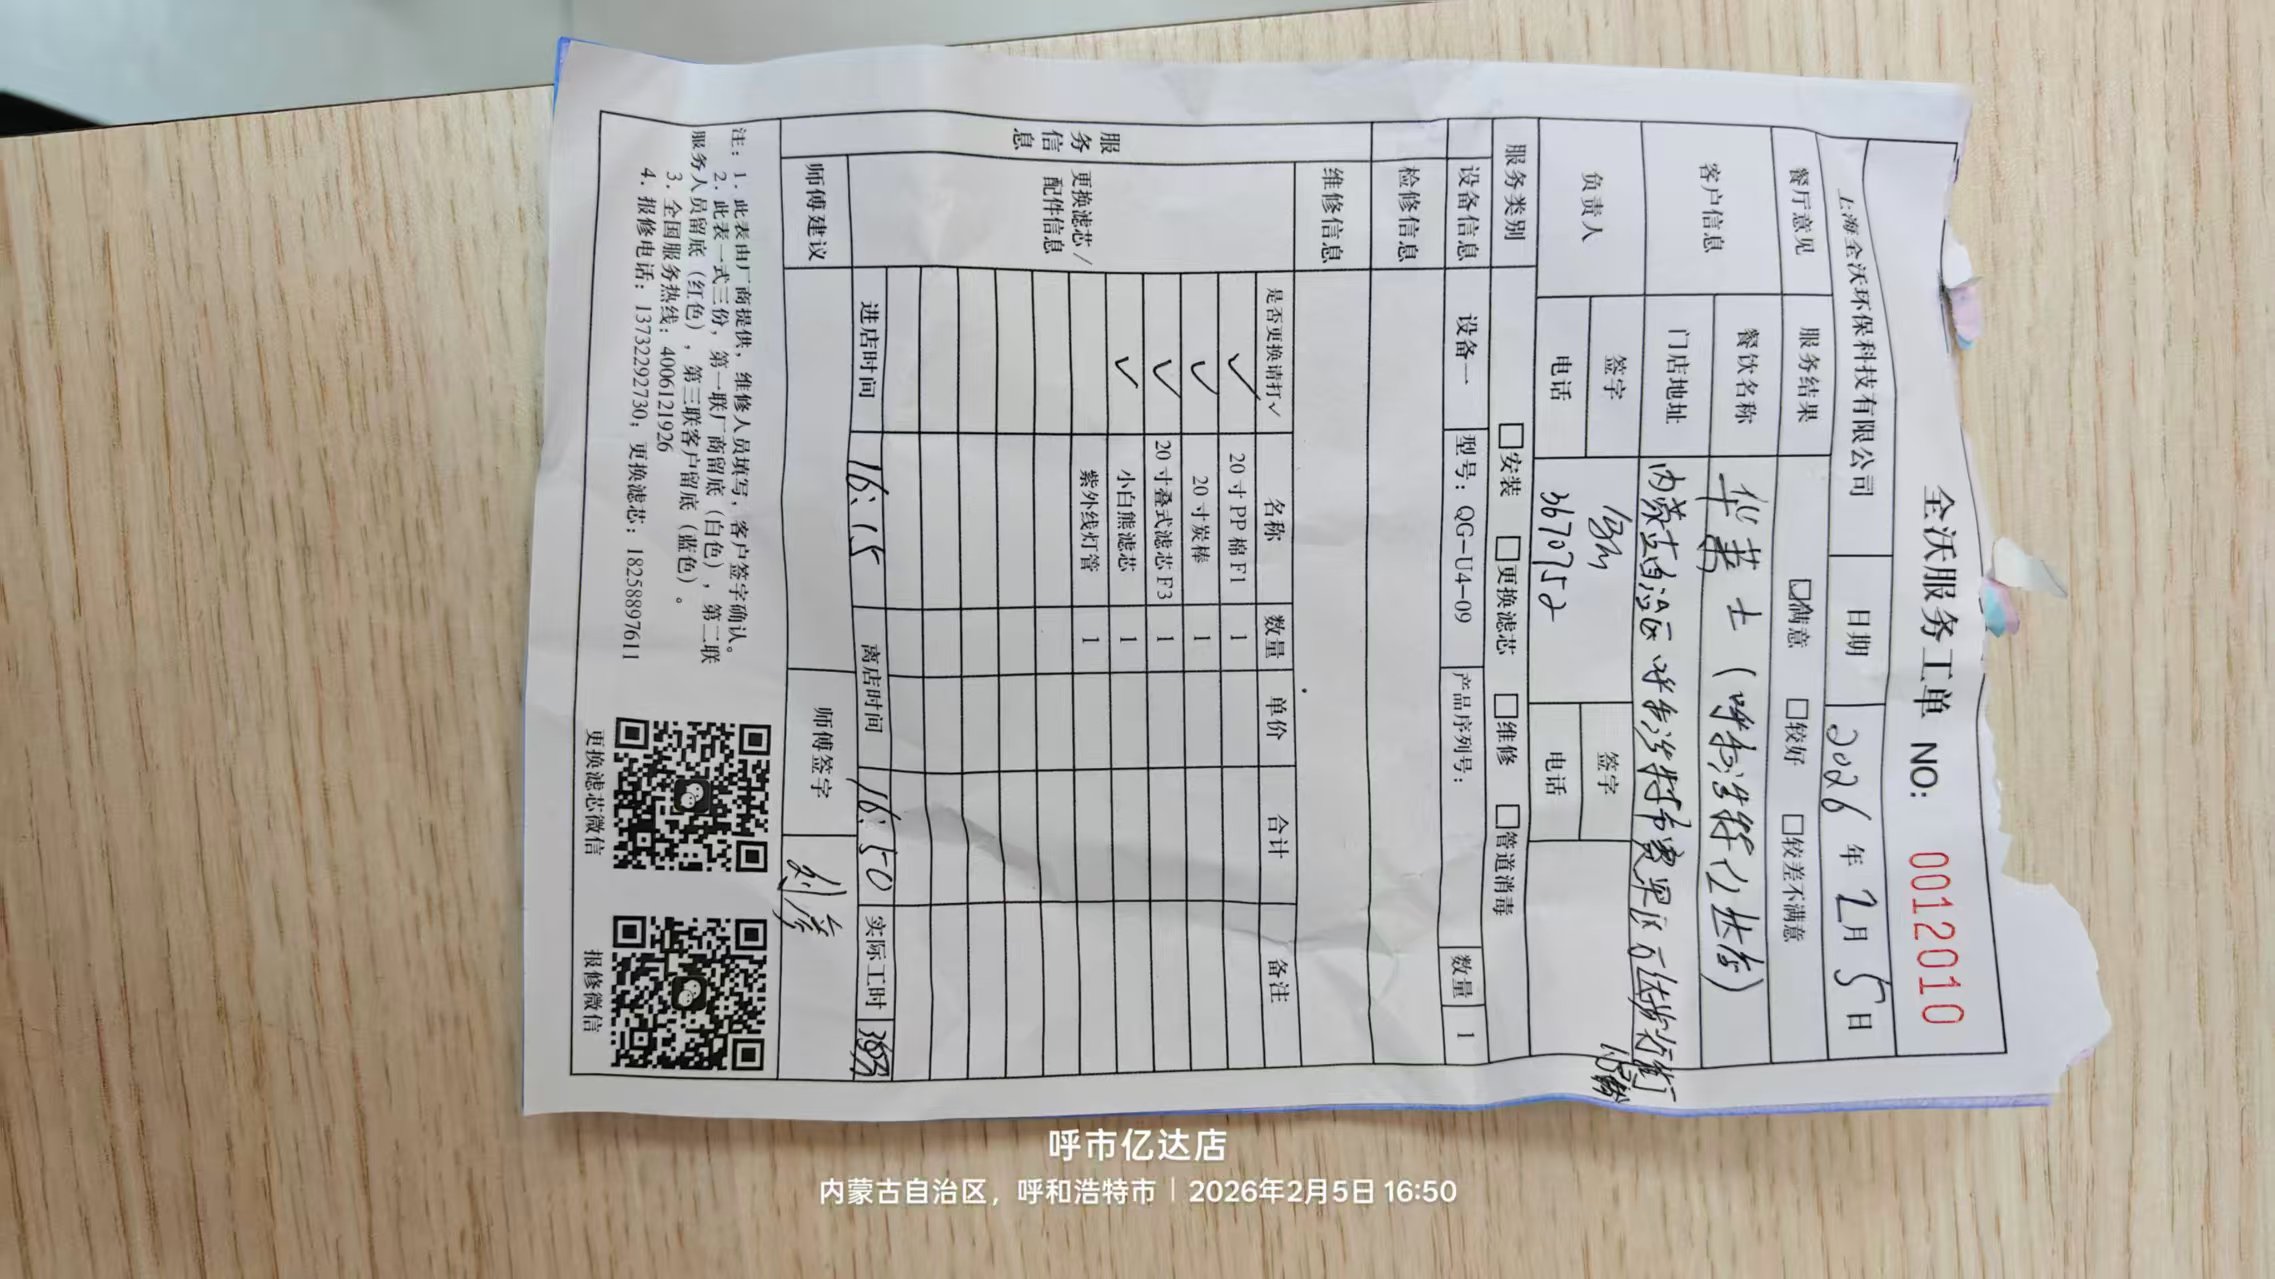 全沃服务工单 NO: 0012010
上海全沃环保科技有限公司 日期 2026 年 2月 5日
餐厅意见 服务结果 ☑满意 □较好 □较差不满意
客户信息 餐饮名称 华莱士(呼和浩特亿达店)
门店地址 内蒙古自治区呼和浩特市赛罕区
负责人 签字 签字
电话 3670752 电话
服务类别 □安装 □更换滤芯 □维修 □管道消毒
设备信息 设备一 型号：QG-U4-09 产品序列号： 数量 1
服务信息
检修信息
维修信息
更换滤芯/配件信息
是否更换请打✓ 名称 数量 单价 合计 备注
✓ 20寸PP棉F1 1
✓ 20寸炭棒 1
✓ 20寸叠式滤芯F3 1
✓ 小白熊滤芯 1
紫外线灯管 1
进店时间 16:15 离店时间 16:50 实际工时
师傅建议 师傅签字
注：1．此表由厂商提供，维修人员填写，客户签字确认。
2．此表一式三份，第一联厂商留底（白色），第二联
服务人员留底（红色），第三联客户留底（蓝色）。
3．全国服务热线：4006121926
4．报修电话：13732292730；更换滤芯：18258897611
更换滤芯微信 报修微信
呼市亿达店
内蒙古自治区，呼和浩特市 | 2026年2月5日 16:50